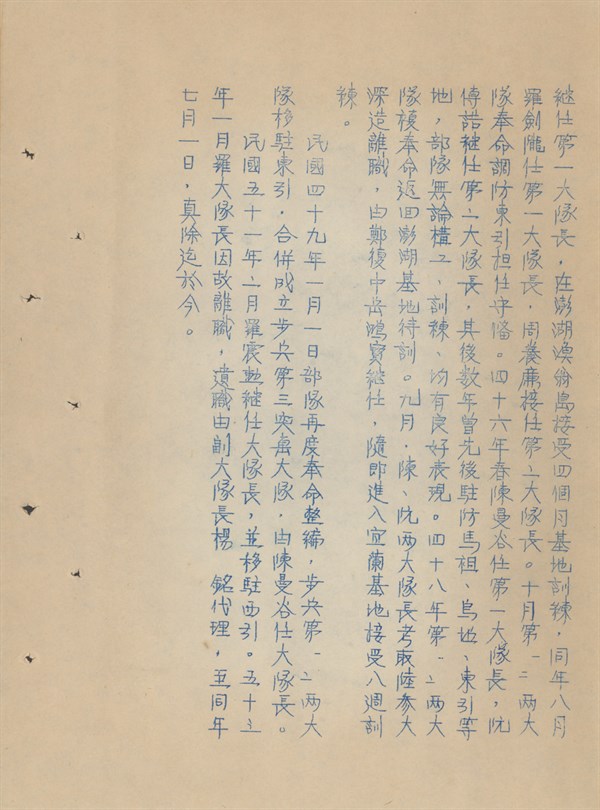 継任第一大隊長，在澎湖漁翁島接受四個月基地訓練，同年八月
羅劍隴任第一大隊長，周養廉接任第二大隊長。十月第一二兩大
隊奉命調防東引担任守俻。四十六年春陳曼谷任第一大隊長，阮
傳誥継任第二大隊長，其後数年曾先後駐防馬祖、烏坵、東引等
地，部隊無論構工、訓練、均有良好表現。四十八年第一二兩大
隊複奉命返回澎湖基地待訓。九月，陳、阮兩大隊長考取陸参大
深造離職，由鄭復中岳鴻賓継任，隨即進入宜蘭基地接受八週訓
練。
民國四十九年一月一日部隊再度奉命整編，步兵第一二兩大
隊移駐東引，合併成立步兵第三突擊大隊，由陳曼谷任大隊長。
民國五十一年二月羅宸勳継任大隊長，並移駐西引。五十三
年一月羅大隊長因故離職，遺職由副大隊長楊 銘代理，至同年
七月一日，真除迄於今。